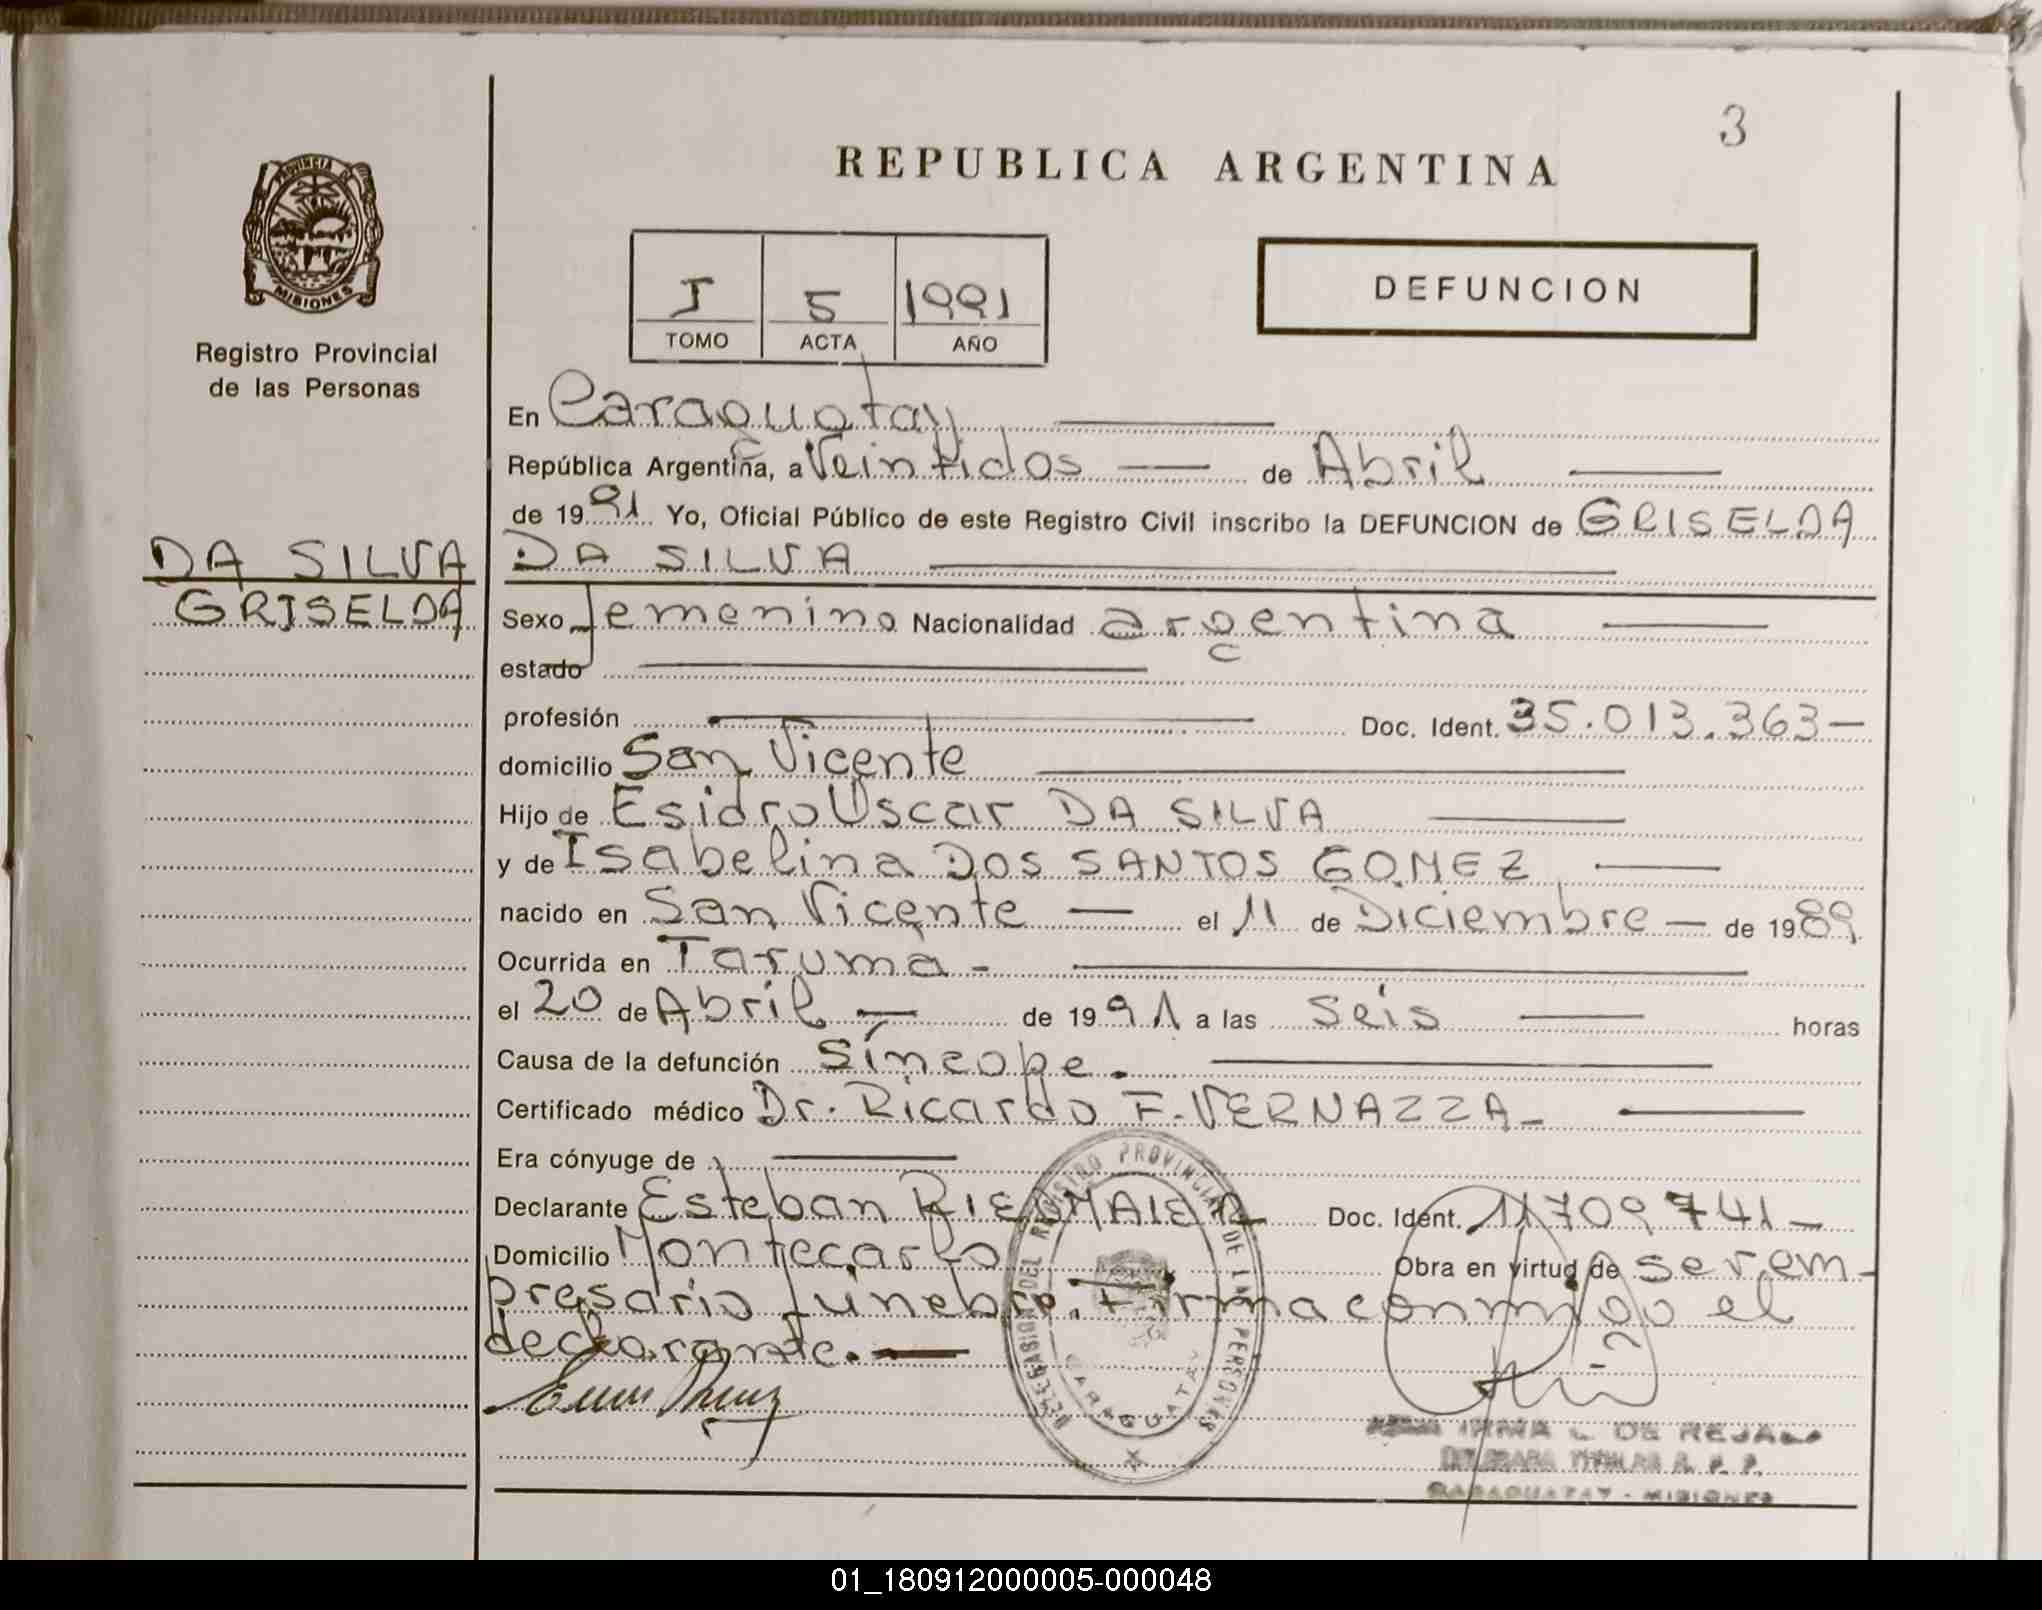 3
REPUBLICA ARGENTINA
PROVINCIA DE
MISIONES
Registro Provincial
de las Personas
I 5 1991
TOMO ACTA AÑO
DEFUNCION
En Caraguatay
República Argentina, a Veintidos de Abril
de 1991 Yo, Oficial Público de este Registro Civil inscribo la DEFUNCION de GRISELDA
DA SILVA
DA SILVA
GRISELDA
Sexo femenino Nacionalidad argentina
estado
profesión Doc. Ident. 35.013.363-
domicilio San Vicente
Hijo de Esidro Oscar DA SILVA
y de Isabelina DOS SANTOS GOMEZ
nacido en San Vicente el 11 de Diciembre de 1989
Ocurrida en Taruma -
el 20 de Abril de 1991 a las seis horas
Causa de la defunción Síncope.
Certificado médico Dr. Ricardo F. VERNAZZA -
Era cónyuge de
Declarante Esteban Doc. Ident. 11709741-
Domicilio Montecarlo Obra en virtud de ser em-
presario fúnebre. Firma conmigo el
declarante.
DELEGACION DEL REGISTRO PROVINCIAL DE LAS PERSONAS
CARAGUATAY
IRMA L. DE REJALA
TITULAR R. P. P.
CARAGUATAY - MISIONES
01_180912000005-000048